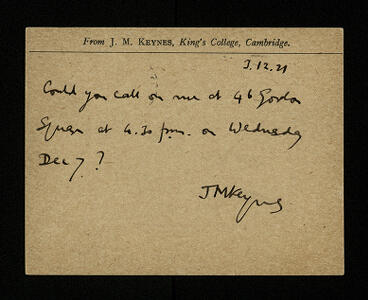 From J. M. KEYNES, King's College, Cambridge.
3.12.21
Could you call on me at 46 Gordon
Square at 4.30 p.m. on Wednesday
Dec 7 ?
JMKeynes